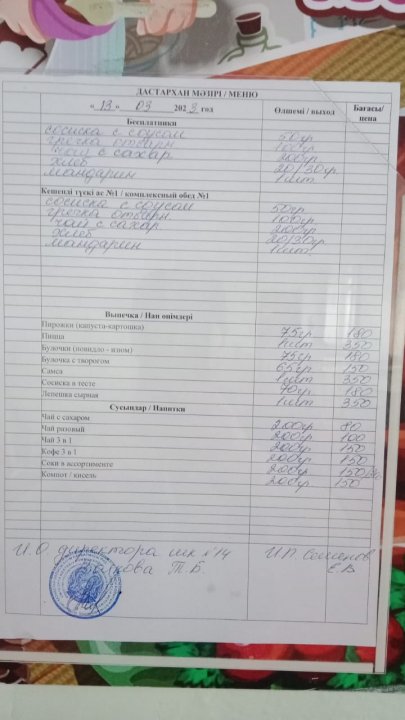 ДАСТАРХАН МӘЗІРІ / МЕНЮ
« 13 » 03 2023 год Өлшемі / выход Бағасы/ цена
Бесплатники
сосиска с соусом 50гр
гречка отварн 100гр
чай с сахар 200гр
хлеб 20/30гр
мандарин 1шт
Кешенді түскі ас №1 / комплексный обед №1
сосиска с соусом 50гр
гречка отварн. 100гр
чай с сахар. 200гр
хлеб 20/30гр
мандарин 1шт
Выпечка / Нан өнімдері
Пирожки (капуста-картошка) 75гр 180
Пицца 1шт 350
Булочки (повидло - изюм) 75гр 180
Булочка с творогом 65гр 150
Самса 1шт 350
Сосиска в тесте 70гр 180
Лепешка сырная 1шт 350
Сусындар / Напитки
Чай с сахаром 200гр 80
Чай разовый 200гр 100
Чай 3 в 1 200гр 150
Кофе 3 в 1 200гр 150
Соки в ассортименте 200гр 150
Компот / кисель 200гр 150
И.О. директора шк №14 И.П. Семенов
Т.Б. Е.В